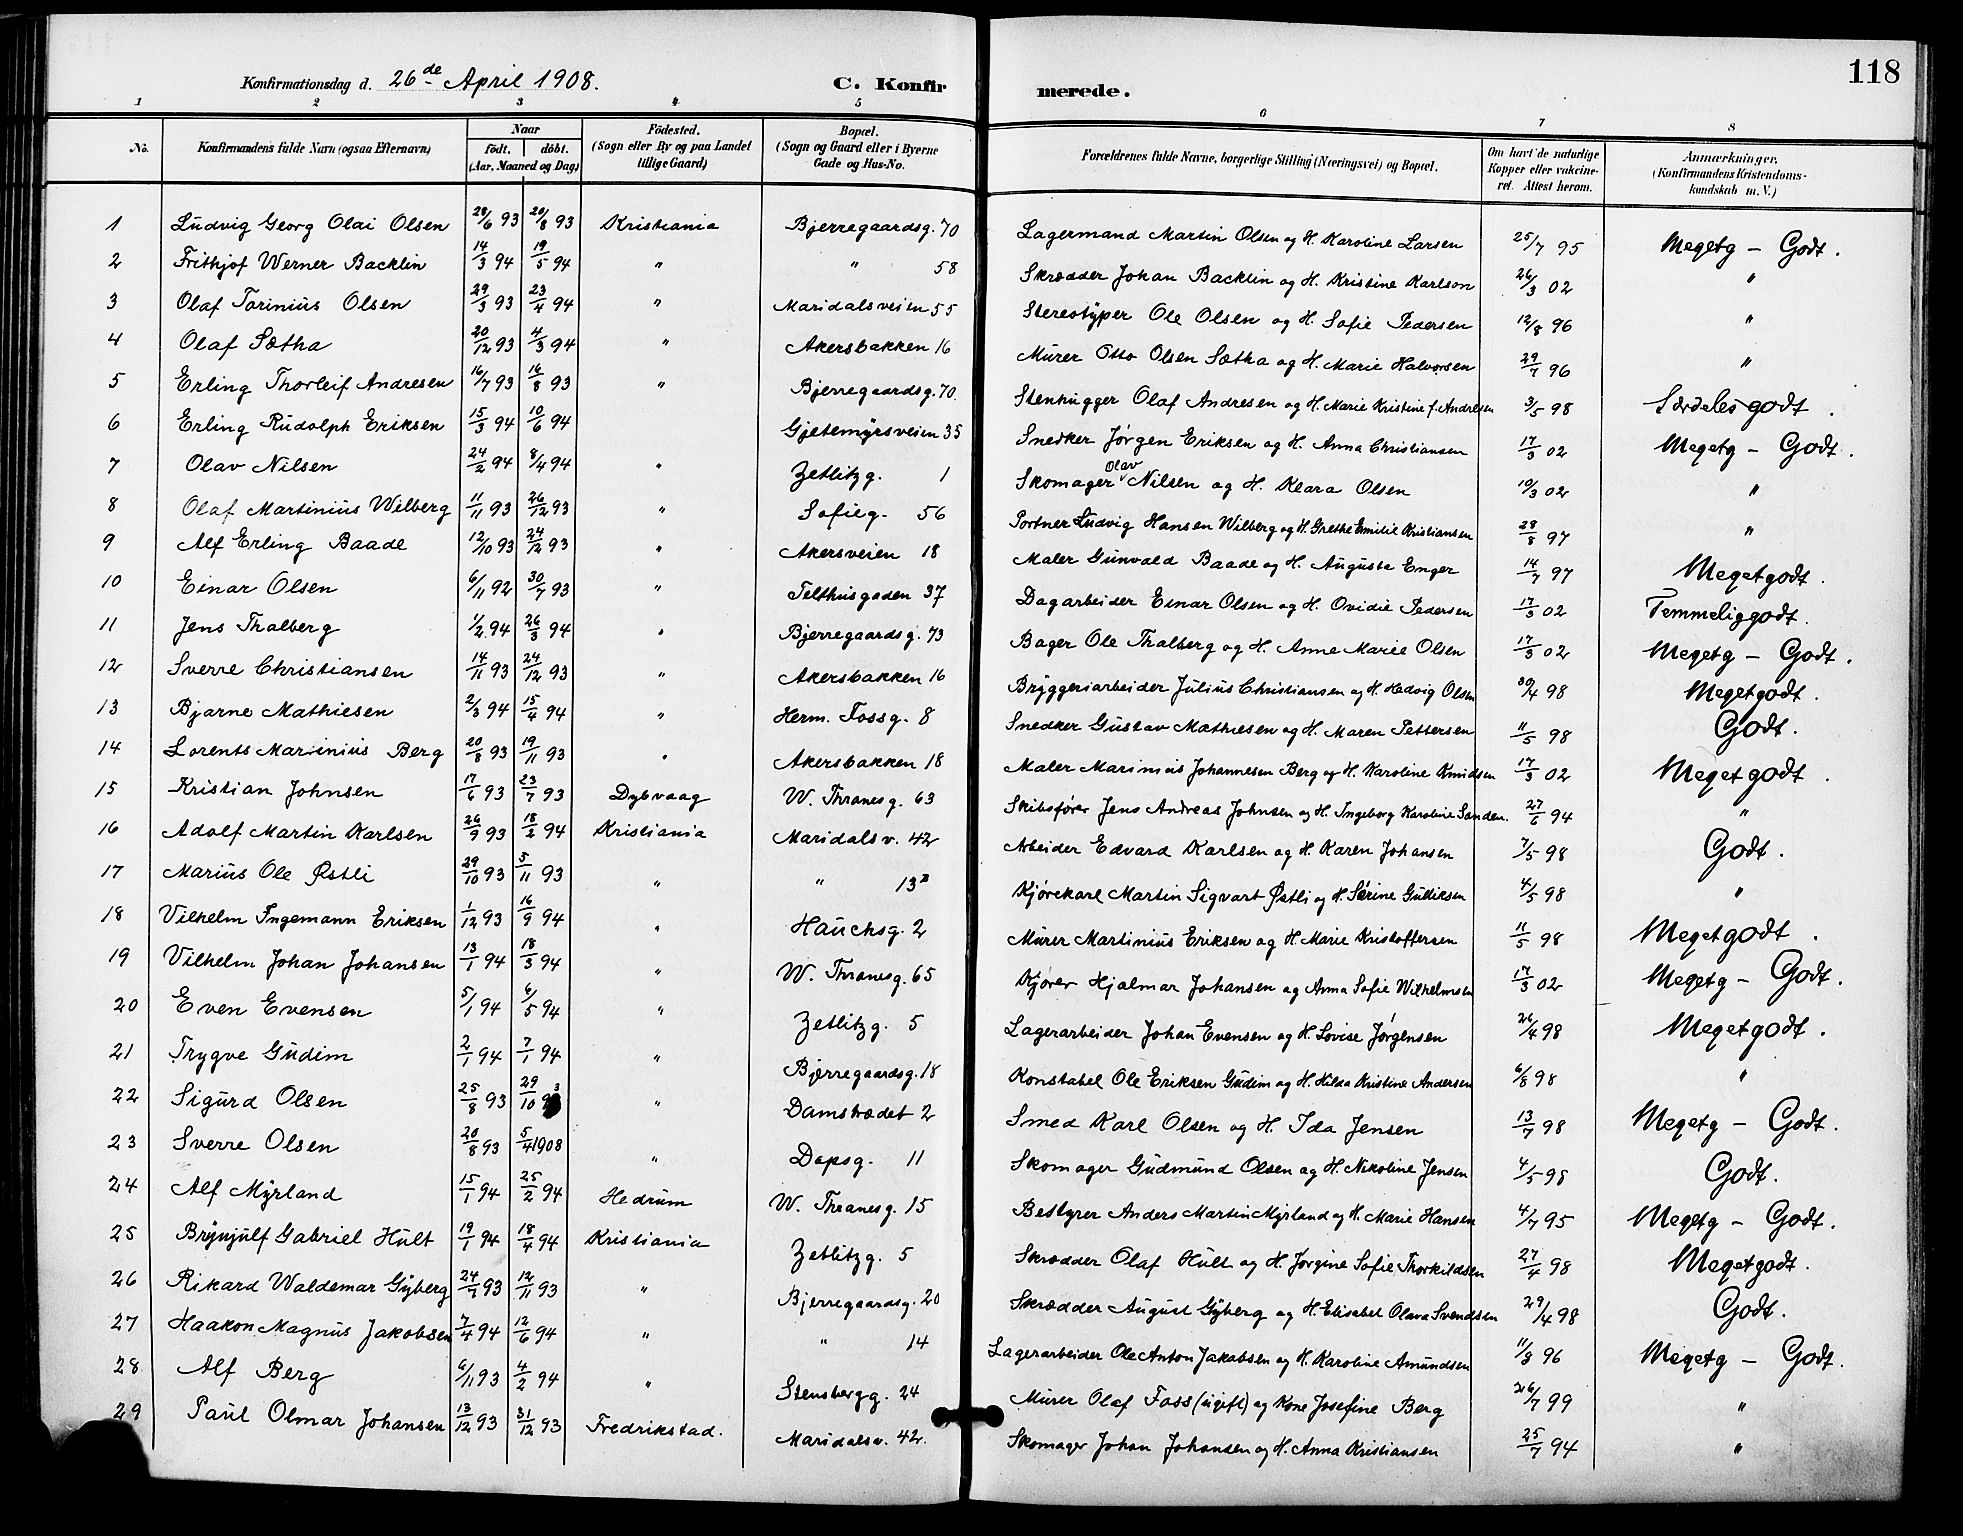 118
Konfirmationsdag d. 26de April 1908. C. Konfirmerede.
1 2 3 4 5 6 7 8
No. Konfirmandens fulde Navn (ogsaa Efternavn) Naar født. døbt. (Aar, Maaned og Dag) Födested. (Sogn eller By og paa Landet tillige Gaard) Bopæl. (Sogn og Gaard eller i Byerne Gade og Hus-No. Forældrenes fulde Navne, borgerlige Stilling (Næringsvei) og Bopæl. Om havt de naturlige Kopper eller vakcineret. Attest herom. Anmærkninger. (Konfirmandens Kristendomskundskab m. V.)
1 Ludvig Georg Olai Olsen 28/6 93 20/8 93 Kristiania Bjerregaardsg. 70 Lagermand Martin Olsen og H. Karoline Larsen 25/7 95 Megetg - Godt.
2 Frithjof Werner Backlin 14/3 94 19/5 94 " " 58 Skrædder Johan Backlin og H. Kristine Karlson 26/3 02 "
3 Olaf Torinius Olsen 29/3 93 23/4 94 " Maridalsveien 55 Stereotyper Ole Olsen og H. Sofie Pedersen 12/8 96 "
4 Olaf Sætha 20/12 93 4/3 94 " Akersbakken 16 Murer Otto Olsen Sætha og H. Marie Halvorsen 29/7 96 "
5 Erling Thorleif Andresen 16/7 93 16/8 93 " Bjerregaardsg. 70. Stenhugger Olaf Andresen og H. Marie Kristine f. Andresen 3/5 98 Særdelesgodt.
6 Erling Rudolph Eriksen 15/3 94 10/6 94 " Gjetemyrsveien 35 Snedker Jørgen Eriksen og H. Anna Christiansen 17/3 02 Megetg - Godt.
7 Olav Nilsen 24/2 94 8/4 94 " Zetlitzg. 1 Skomager Olav Nilsen og H. Klara Olsen 19/3 02 "
8 Olaf Martinius Wilberg 11/11 93 26/12 93 " Sofieg. 56 Portner Ludvig Hansen Wilberg og H. Grethe Emilie Kristiansen 28/8 97 "
9 Alf Erling Baade 12/10 93 24/12 93 " Akersveien 18 Maler Gunvald Baade og H. Augusta Enger 14/7 97 Megetgodt.
10 Einar Olsen 6/11 92 30/7 93 " Telthusgaden 37 Dagarbeider Einar Olsen og H. Ovidie Pedersen 17/3 02 Temmeliggodt.
11 Jens Thalberg 1/2 94 26/3 94 " Bjerregaardsg. 73 Bager Ole Thalberg og H. Anne Marie Olsen 17/3 02 Megetg - Godt.
12 Sverre Christiansen 14/11 93 24/12 93 " Akersbakken 16 Bryggeriarbeider Julius Christiansen og H. Hedvig Olsen 30/4 98 Megetgodt.
13 Bjarne Mathiesen 2/3 94 15/4 94 " Herm. Fossg. 8 Snedker Gustav Mathiesen og H. Maren Pettersen 11/5 98 Godt.
14 Lorents Marinius Berg 20/8 93 19/11 93 " Akersbakken 18 Maler Marinius Johannesen Berg og H. Karoline Knudsen 17/3 02 Megetgodt.
15 Kristian Johnsen 17/6 93 23/7 93 Dybvaag W. Thranesg. 63 Skibsfører Jens Andreas Johnsen og H. Ingeborg Karoline Sanden. 27/6 94 "
16 Adolf Martin Karlsen 26/9 93 18/2 94 Kristiania Maridalsv. 42 Arbeider Edvard Karlsen og H. Karen Johansen 7/5 98 Godt.
17 Marius Ole Østli 29/10 93 5/11 93 " " 13B Kjørekarl Martin Sigvart Østli og H. Sørine Gulliksen 4/5 98 "
18 Vilhelm Ingemann Eriksen 1/12 93 16/9 94 " Hauchsg. 2 Murer Martinius Eriksen og H. Marie Kristoffersen 11/5 98 Megetgodt.
19 Vilhelm Johan Johansen 13/1 94 18/3 94 " W. Thranesg. 65 Kjører Hjalmar Johansen og Anna Sofie Wilhelmsen 17/3 02 Megetg - Godt.
20 Even Evensen 5/1 94 6/5 94 " Zetlitzg. 5 Lagerarbeider Johan Evensen og H. Lovise Jørgensen 26/4 98 Megetgodt.
21 Trygve Gudim 2/1 94 7/1 94 " Bjerregaardsg. 18 Konstabel Ole Eriksen Gudim og H. Hilda Kristine Andersen 6/8 98 "
22 Sigurd Olsen 25/8 93 29/10 93 " Damstrædet 2 Smed Karl Olsen og H. Ida Jensen 13/7 98 Megetg - Godt.
23 Sverre Olsen 20/8 93 5/4 1908 " Dopsg. 11 Skomager Gudmund Olsen og H. Nikoline Jensen 4/5 98 Godt.
24 Alf Myrland 15/1 94 25/2 94 Hedrum W. Thranesg. 15 Bestyrer Anders Martin Myrland og H. Marie Hansen 4/7 95 Megetg - Godt.
25 Brynjulf Gabriel Hult 19/1 94 18/4 94 Kristiania Zetlitzg. 5 Skrædder Olaf Hult og H. Jørgine Sofie Thorkildsen 27/4 98 Megetgodt.
26 Rikard Waldemar Gyberg 24/7 93 12/11 93 " Bjerregaardsg. 20 Skrædder August Gyberg og H. Elisabet Olava Svendsen 29/4 98 Godt.
27 Haakon Magnus Jakobsen 7/4 94 12/6 94 " " 14 Lagerarbeider Ole Anton Jakobsen og H. Karoline Amundsen 11/8 96 Megetg - Godt.
28 Alf Berg 6/11 93 4/2 94 " Stensbergg. 24 Murer Olaf Foss (ugift) og Kone Josefine Berg 26/7 99 "
29 Paul Olmar Johansen 13/12 93 31/12 93 Fredrikstad. Maridalsv. 42. Skomager Johan Johansen og H. Anna Kristiansen 25/7 94 "